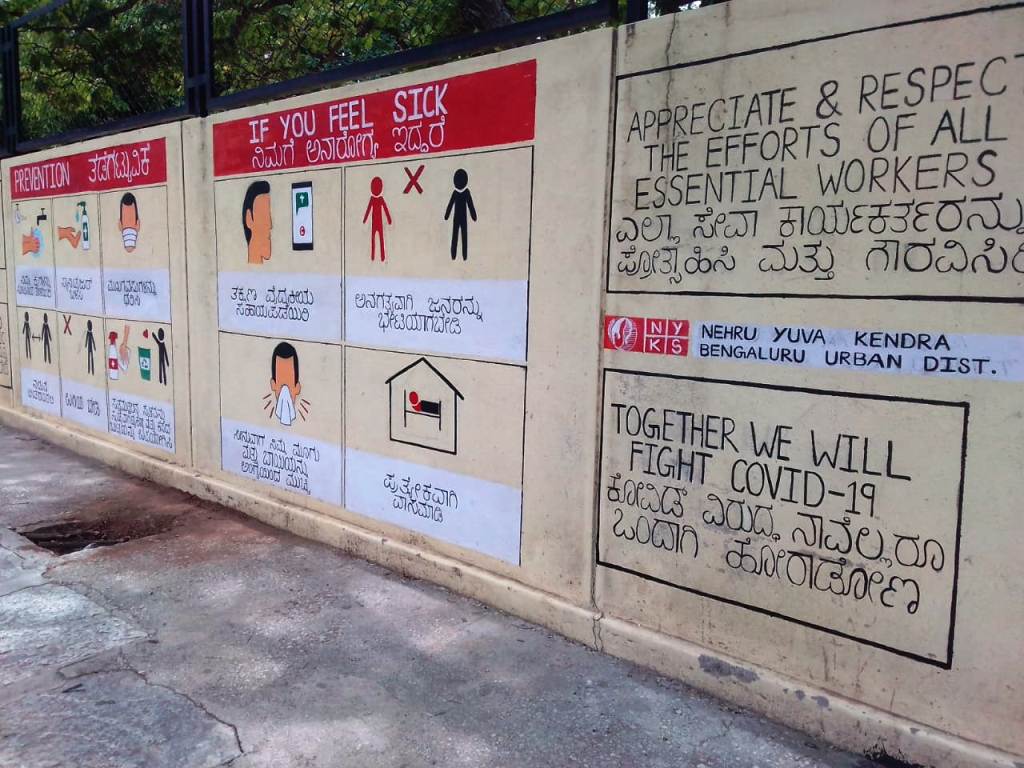 PREVENTION ತಡೆಗಟ್ಟುವಿಕೆ
ಮುಖಗವಸುಗಳನ್ನು
ಧರಿಸಿ
IF YOU FEEL SICK
ನಿಮಗೆ ಅನಾರೋಗ್ಯ ಇದ್ದರೆ
ತಕ್ಷಣ ವೈದ್ಯಕೀಯ
ಸಹಾಯಪಡೆಯಿರಿ
ಅನಗತ್ಯವಾಗಿ ಜನರನ್ನು
ಭೇಟಿಯಾಗಬೇಡಿ
ಸೀನುವಾಗ ನಿಮ್ಮ ಮೂಗು
ಮತ್ತು ಬಾಯಿಯನ್ನು
ಅಂಗೈಯಿಂದ ಮುಚ್ಚಿ
ಪ್ರತ್ಯೇಕವಾಗಿ
ವಾಸಮಾಡಿ
APPRECIATE & RESPECT
THE EFFORTS OF ALL
ESSENTIAL WORKERS
ಎಲ್ಲಾ ಸೇವಾ ಕಾರ್ಯಕರ್ತರನ್ನು
ಪ್ರೋತ್ಸಾಹಿಸಿ ಮತ್ತು ಗೌರವಿಸಿರಿ
NYKS
NEHRU YUVA KENDRA
BENGALURU URBAN DIST.
TOGETHER WE WILL
FIGHT COVID-19
ಕೋವಿಡ್ ವಿರುದ್ಧ ನಾವೆಲ್ಲರೂ
ಒಂದಾಗಿ ಹೋರಾಡೋಣ